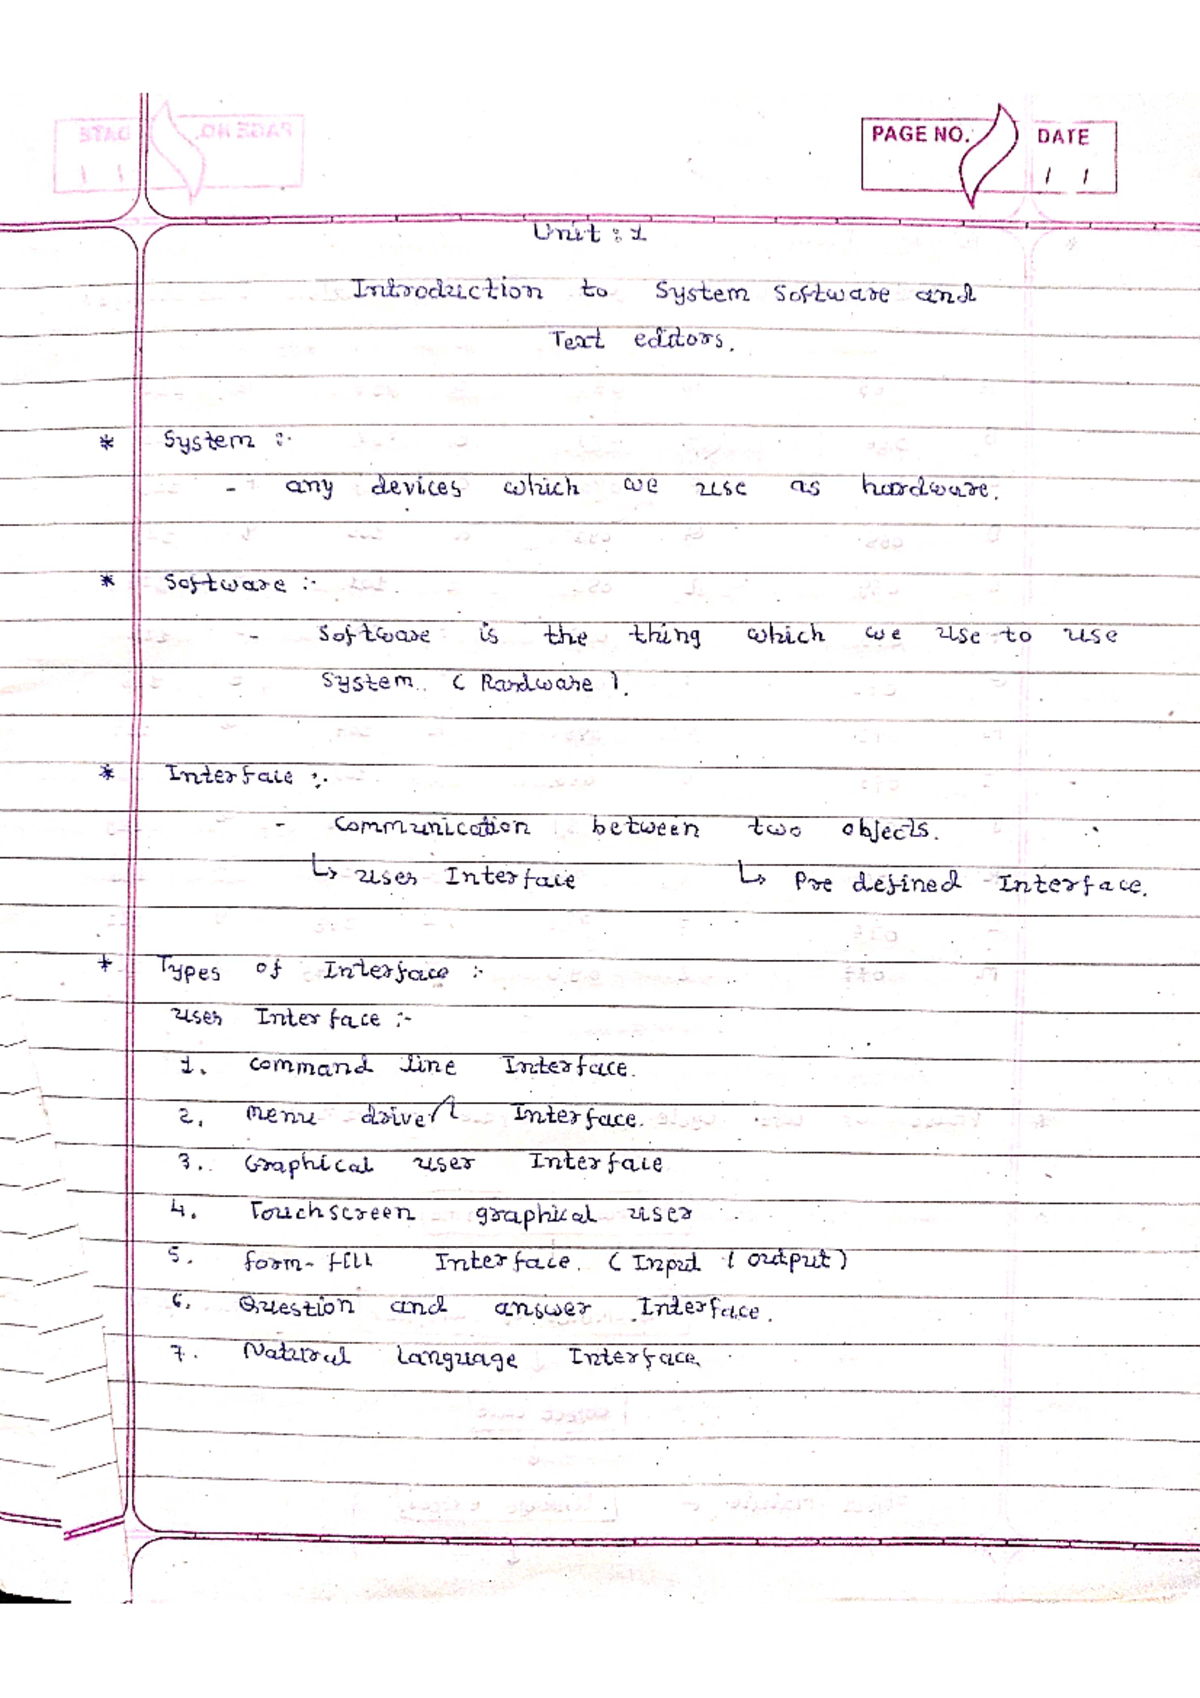 PAGE NO. DATE
/ /
Unit : 1
Introduction to System Software and
Text editors.
* System :-
- any devices which we use as hardware.
* Software :-
- Software is the thing which we use to use
System. ( Hardware ).
* Interface :-
- Communication between two objects.
↳ User Interface ↳ Pre defined Interface.
* Types of Interface :-
User Interface :-
1. Command line Interface.
2. Menu driven Interface.
3. Graphical user Interface
4. Touchscreen graphical user
5. form-fill Interface. ( Input / output )
6. Question and answer Interface.
7. Natural Language Interface.